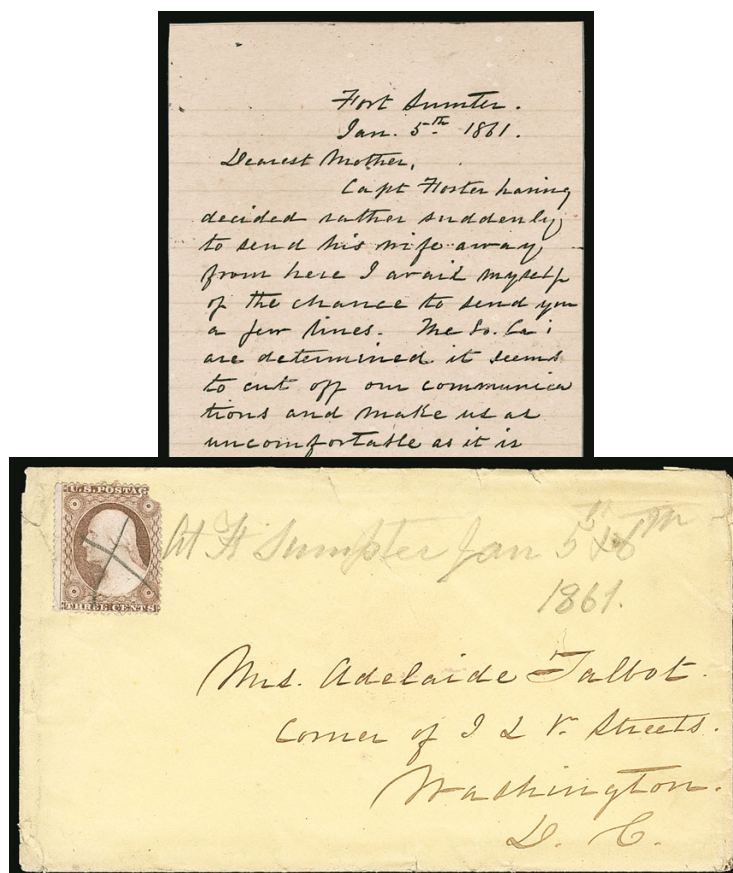 Fort Sumter.
Jan. 5th 1861.
Dearest Mother,
Capt Foster having
decided rather suddenly
to send his wife away
from here I avail myself
of the chance to send you
a few lines. The So. Ca's
are determined it seems
to cut off our communica
tions and make us as
uncomfortable as it is
U.S. POSTAG
THREE CENTS
At Ft Sumpter Jan 5th & 6th
1861.
Mrs. Adelaide Talbot.
Corner of I & Streets.
Washington.
D. C.